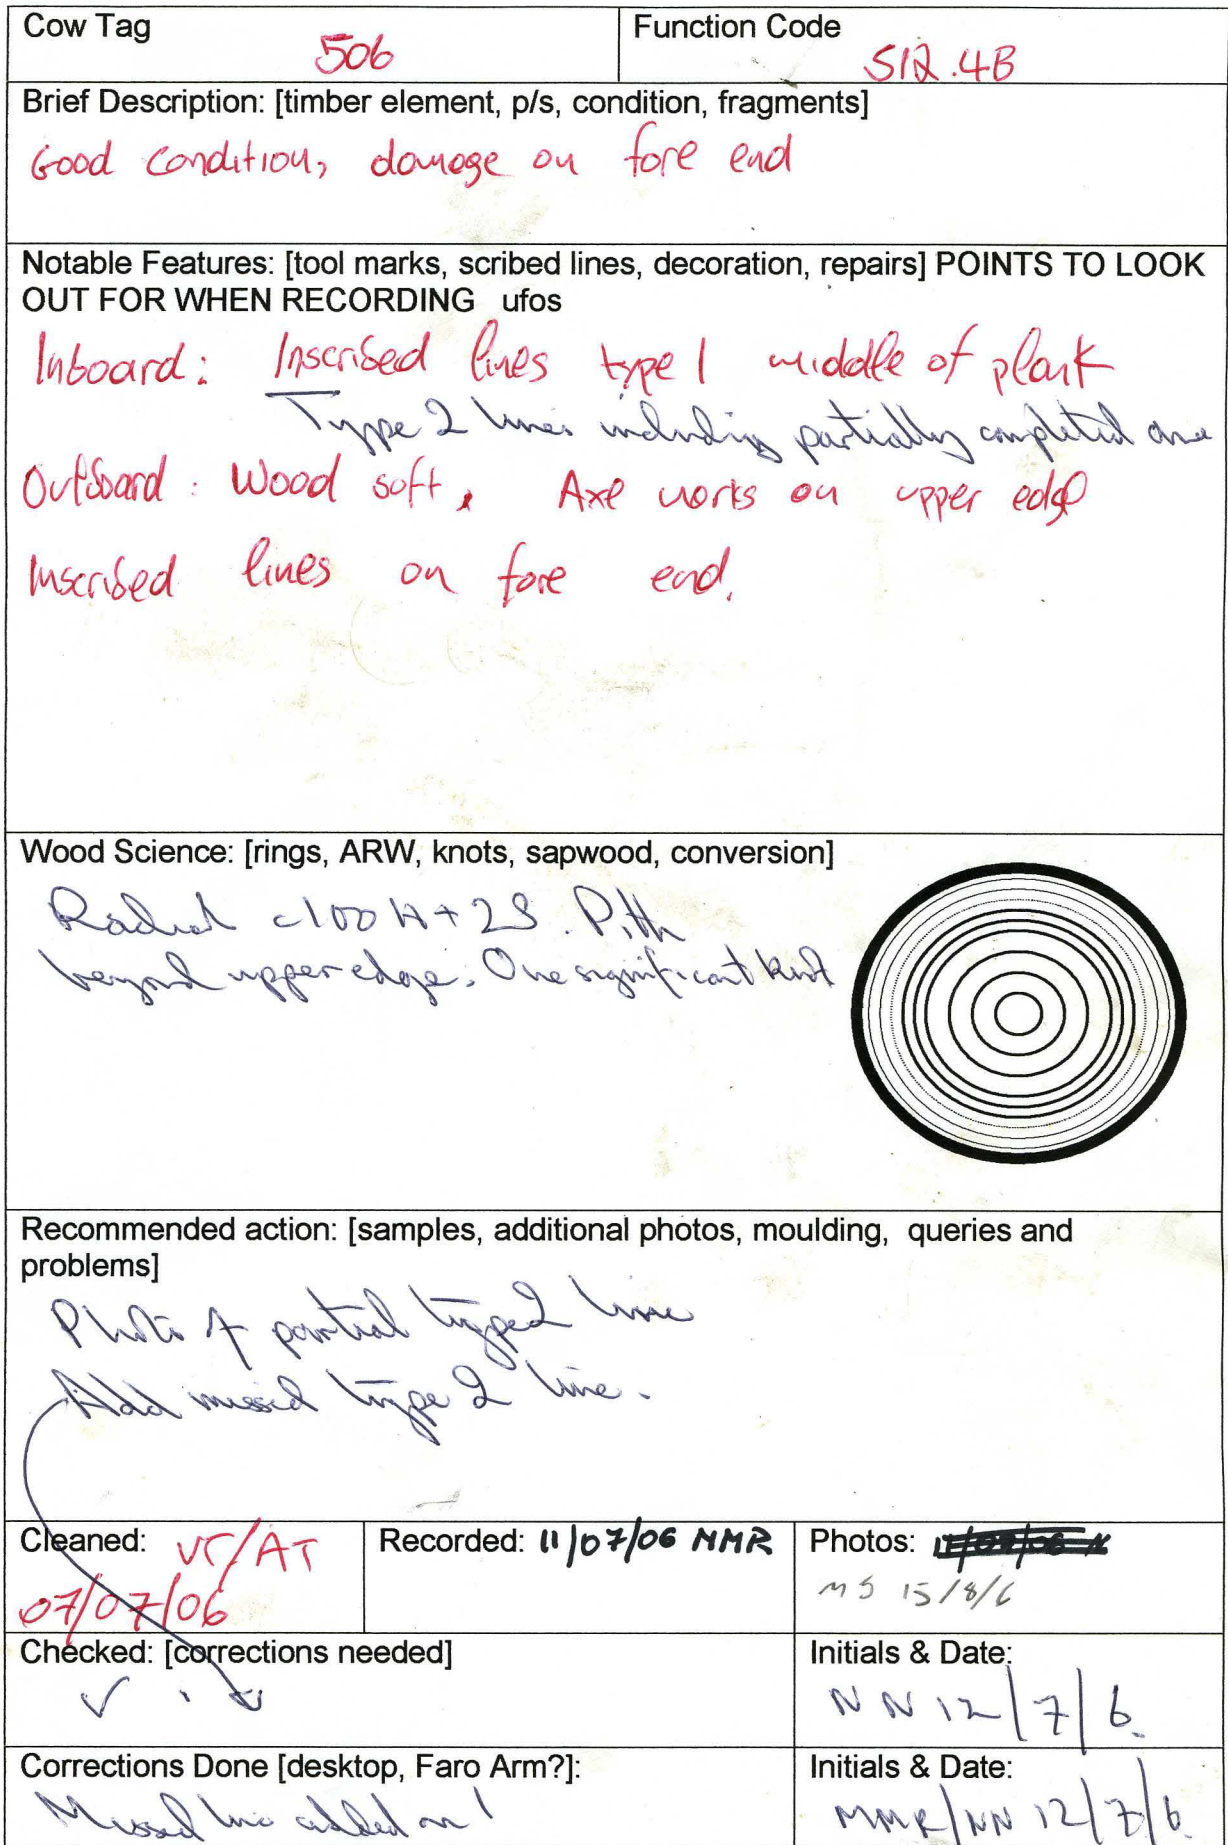 Cow Tag
506
Function Code
S12.4B
Brief Description: [timber element, p/s, condition, fragments]
Good condition, damage on fore end
Notable Features: [tool marks, scribed lines, decoration, repairs] POINTS TO LOOK
OUT FOR WHEN RECORDING ufos
Inboard: Inscribed lines type 1 middle of plank
Type 2 lines including partially completed one
Outboard: Wood soft, Axe works on upper edge
Inscribed lines on fore end.
Wood Science: [rings, ARW, knots, sapwood, conversion]
Radial c100 H + 2S. Pith
beyond upper edge. One significant knot
Recommended action: [samples, additional photos, moulding, queries and
problems]
Photo of partial type 2 line
Add missed type 2 line.
Cleaned: VT/AT
07/07/06
Recorded: 11/07/06 MMR
Photos:
MS 15/8/6
Checked: [corrections needed]
✓
Initials & Date:
NN 12/7/6.
Corrections Done [desktop, Faro Arm?]:
Missed line added on!
Initials & Date:
MMR/NN 12/7/6.